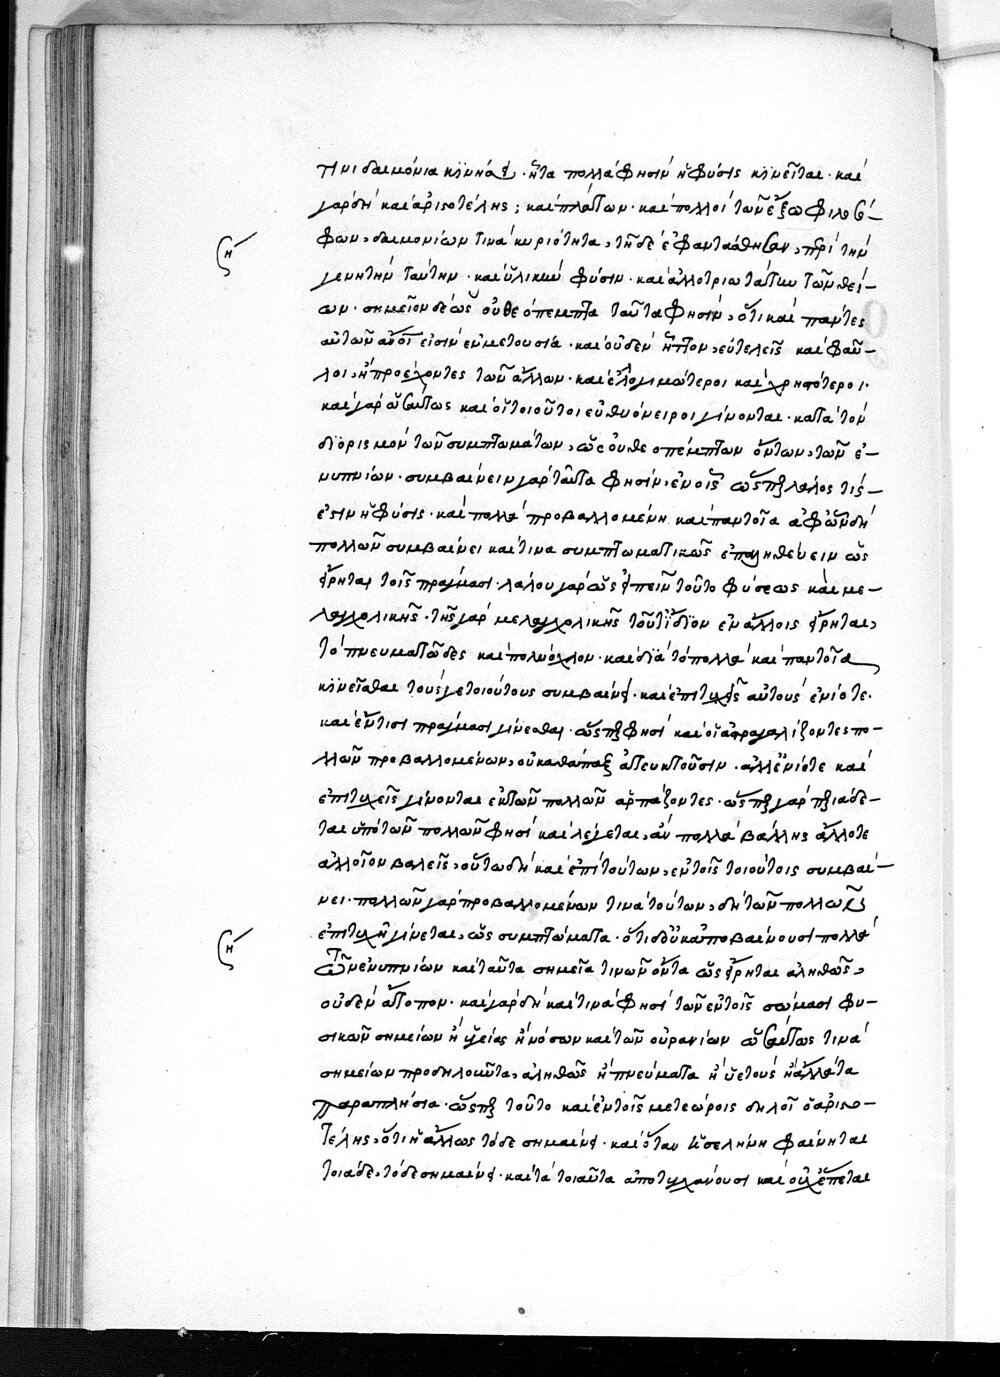 τινι δαιμόνια κϊνηθ. ἥτα πολλὰ φησὶν ἡ φύσις κϊνεῖται· καὶ
γὰρ δὴ καὶ ἀριστοτέλης; καὶ πλάτων· καὶ πολλοὶ τῶν ἔξω φιλοσό-
φων, δαιμονίων τινὰ κυριότητα, τῆδε ἐφαντάσθησαν, περὶ τὴν
γεννητὴν ταύτην· καὶ ὑλικὴν φύσιν· καὶ ἀλλοτριωτάτην τῶν θεί-
ων· σημεῖον δὲ ὡς οὐ θεόπεμπτα ταῦτα φησὶν, ὅτι καὶ πάντες
αὐτῶν αὐτοί εἰσιν ἐν μετουσία· καὶ οὐδὲν ἧττον, εὐτελεῖς καὶ φαῦ-
λοι, ἢ προέχοντες τῶν ἄλλων· καὶ ἐλλογιμώτεροι καὶ χρηστότεροι·
καὶ γὰρ ὡσαύτως καὶ οἱ τοιοῦτοι εὐθυόνειροι γίνονται· κατὰ τὸν
διορισμὸν τῶν συμπτωμάτων, ὡς οὐ θεοπέμπτων ὄντων, τῶν ἐ-
νυπνίων· συμβαίνειν γὰρ ταῦτα φησὶν, ἐν οἷς ὥσπερ λάλος τίς
ἐστιν ἡ φύσις· καὶ πολλὰ προβαλλομένη καὶ παντοῖα ἀφ' ὧν δὴ
πολλῶν συμβαίνει καὶ τινα συμπτωματικῶς ἐπαληθεύειν ὡς
εἴρηται τοῖς πράγμασι· λάλου γὰρ ὡς εἰπεῖν τοῦτο φύσεως καὶ με-
λαγχολικῆς· τῆς γὰρ μελαγχολικῆς τοῦτ' ἴδϊον ἐν ἄλλοις εἴρηται,
τὸ πνευματῶδες καὶ πολύοχλον· καὶ διὰ τὸ πολλὰ καὶ παντοῖα
κϊνεῖσθαι τούς γε τοιούτους συμβαίνει· καὶ ἐπιτυχεῖς αὐτοὺς ἐνίοτε·
καὶ ἔν τισι πράγμασι γίνεσθαι· ὥσπερ φησὶ καὶ οἱ ἀστραγαλίζοντες πο-
λλῶν προβαλλομένων, οὐ καθάπαξ ἀτευκτοῦσιν· ἀλλ' ἐνίοτε καὶ
ἐπιτυχεῖς γίνονται ἐκ τῶν πολλῶν ἁρπάζοντες· ὥσπερ γὰρ
ται ὑπὸ τῶν πολλῶν φησὶ καὶ λέγεται, ἂν πολλὰ βάλλης ἄλλοτε
ἀλλοῖον βαλεῖς, οὕτω δὴ καὶ ἐπὶ τούτων, ἐν τοῖς τοιούτοις συμβαί-
νει· πολλῶν γὰρ προβαλλομένων τινὰ τούτων, δὴ τῶν πολλῶν
ἐπιτυχῆ γίνεται, ὡς συμπτώματα· ὅτι δὲ οὐκ ἀποβαίνουσι πολλὰ
τῶν ἐνυπνίων καὶ ταῦτα σημεῖα τινῶν ὄντα ὡς εἴρηται ἀληθῶς,
οὐδὲν ἄτοπον· καὶ γὰρ δὴ καὶ τινὰ φησὶ τῶν ἐν τοῖς σώμασι φυ-
σικῶν σημείων ἢ ὑγείας ἢ νόσων καὶ τῶν οὐρανίων ὡσαύτως τινὰ
σημείων προδηλοῦντα, ἀληθῶς ἢ πνεύματα ἢ ὑετοὺς ἢ ἄλλ' ἄττα
παραπλήσια· ὥσπερ τοῦτο καὶ ἐν τοῖς μετεώροις δηλοῖ ὁ ἀριστο-
τέλης, ὅτι ἡ ἅλλως τόδε σημαίνει· καὶ ὅταν ἡ σελήνη φαίνηται
τοιάδε, τόδε σημαίνει· καὶ τὰ τοιαῦτα ἀποτυγχάνουσι καὶ οὐχ ἕπεται